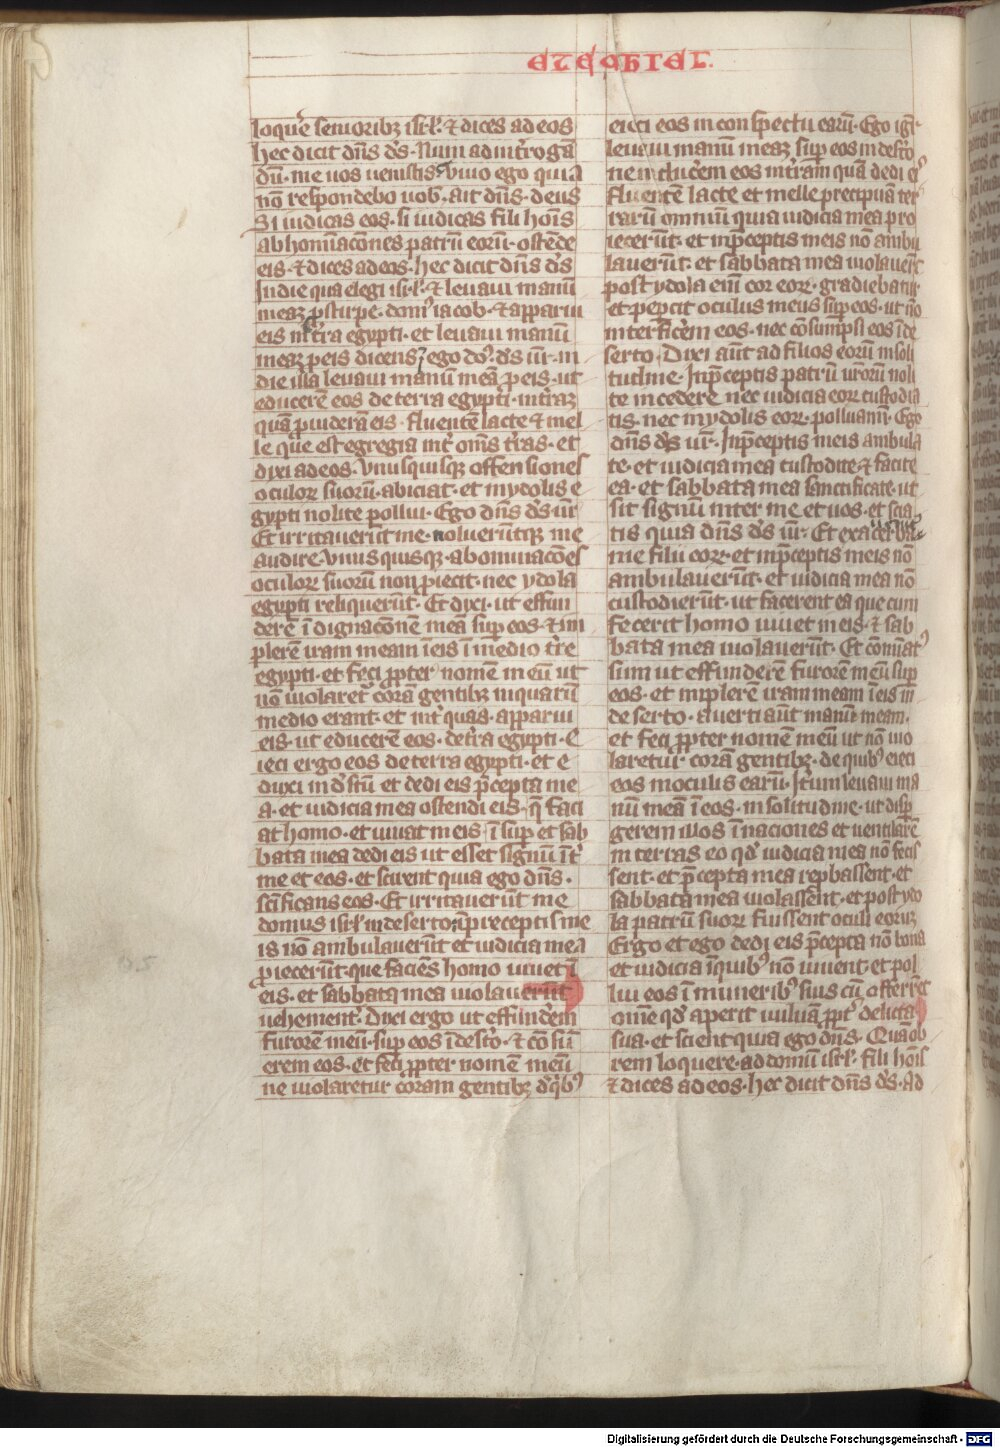 EZEChIEL.
loquere senioribꝫ isrl̄·⁊ dices ad eos
hec dicit dn̄s d̄s·Num ad int̄rogā
dū·me vos venistis·vivo ego quia
nō respondebo vob̄·ait dn̄s·deus
Si iudicas eos·si iudicas fili hoīs
abhominacōnes patrū eorū·ostēde
eis·⁊ dices ad eos·hec dicit dn̄s d̄s
In die qua elegi isrl̄·⁊ levavi manū
meaꝫ ꝓ stirpe·domꝰ iacob·⁊ apparui
eis in t̄ra egypti·et levavi manū
meaꝫ ꝓ eis dicens ego dn̄s·d̄s v̄r·in
die illa levavi manū meā ꝓ eis·ut
educerē eos de terra egypti·in t̄raꝫ
quā ꝓviderā eis·fluentē lacte ⁊ mel
le que est egregia int̄ om̄s t̄ras·et
dixi ad eos·Vnusquisqꝫ offensiones
oculoꝝ suorū·abiciat·et in ydolis e
gypti nolite pollui·Ego dn̄s d̄s v̄r
Et irritaverūt me·nolverūtqꝫ me
audire·Vnusquisqꝫ·abominacōes
oculoꝝ suorū non ꝓiecit·nec ydola
egypti reliquerūt·Et dixi·ut effun
derē īdignacōnē meā suꝑ eos·⁊ im
plerē iram meam ī eis ī medio t̄re
egypti·et feci ꝓpter nomē meū ut
nō violaret̄ corā gentibꝫ in quarū
medio erant·et int̄ quas·apparui
eis·ut educerē eos·de t̄ra egypti·E
ieci ergo eos de terra egypti·et e
duxi in d̄stū·et dedi eis p̄cepta me
a·et iudicia mea ostendi eis·q̄ faci
at homo·et vivat in eis·īsuꝑ et sab
bata mea dedi eis ut esset signū īt̄
me et eos·et scirent quia ego dn̄s·
sc̄ificans eos·Et irritaverūt me
domus isrl̄ in deserto in preceptis me
is nō ambulaverūt et iudicia mea
ꝓiecerūt·que faciēs homo vivet ī
eis·et sabbata mea violaverūt
vehement̄·Dixi ergo ut effunderē
furorē meū·suꝑ eos ī des̄to·⁊ cōsū
erem eos·et feci ꝓpter nomē meū
ne violaretur coram gentibꝫ d̄ qͥbꝰ
eieci eos in conspectu earū·Ego igͥ·
levavi manū meaꝫ suꝑ eos in des̄to
ne inducerem eos in t̄ram quā dedi eꝰ
fluentē lacte et melle precipuā ter
rarū omniū quia iudicia mea pro
iecerūt·et in p̄ceptis meis nō ambu
laverūt·et sabbata mea violaverūt
post ydola eni̅ cor eoꝝ·gradiebatur
et peꝑcit oculus meus suꝑ eos·ut nō
interficerem eos·nec cōsumpsi eos ī de
serto·Dixi aūt ad filios eorū in soli
tudine·In p̄ceptis patrū vr̄orū noli
te incedere nec iudicia eoꝝ custodia
tis·nec in ydolis eoꝝ·polluami̅·Ego
dn̄s d̄s v̄r·In p̄ceptis meis ambula
te·et iudicia mea custodite·⁊ facite
ea·et sabbata mea sanctificate·ut
sit signū inter me et vos·et scia
tis quia dn̄s d̄s v̄r·Et exacerbaver̄
me filii eoꝝ·et in p̄ceptis meis nō
ambulaverūt·et iudicia mea nō
custodierūt·ut facerent ea que cum
fecerit homo vivet in eis·⁊ sab
bata mea violaverūt·Et cōmi̅atꝰ
sum ut effunderē furorē meū suꝑ
eos·et implerē iram meam ī eis in
deserto·averti aūt manū meam·
et feci ꝓpter nomē meū ut nō vio
laretur·corā gentibꝫ·de quibꝰ eieci
eos in oculis earū·It̄um levavi ma
nū meā ī eos·in solitudine·ut disꝑ
gerem illos ī naciones et ventilarē
in terras eo qd̄ iudicia mea nō fecis
sent·et p̄cepta mea reꝓbassent·et
sabbata mea violassent·et post ydo
la patrū suoꝝ fuissent oculi eoruꝫ
Ergo et ego dedi eis p̄cepta nō bona
et iudicia ī quibꝰ nō vivent·et pol
lui eos ī muneribꝰ suis cū offerrēt
om̄e qd̄ aperit vulvā ꝓpt̄ delicta
sua·et scient quia ego dn̄s·Quā ob
rem loquere·ad domū isrl̄·fili hoīs
⁊ dices ad eos·hec dicit dn̄s d̄s·Ad
Digitalisierung gefördert durch die Deutsche Forschungsgemeinschaft - DFG